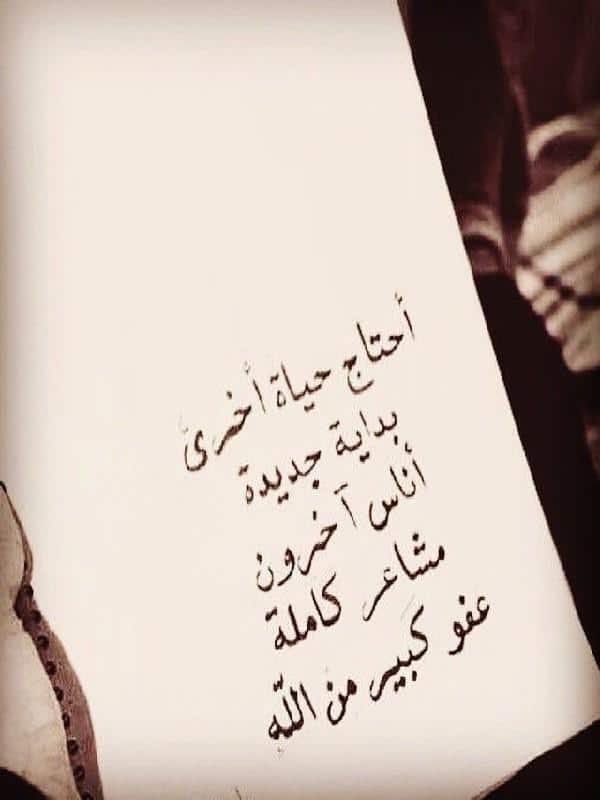 أحتاج حياة أخرى
بداية جديدة
أناس آخرون
مشاعر كاملة
عفو كَبير من اللّه